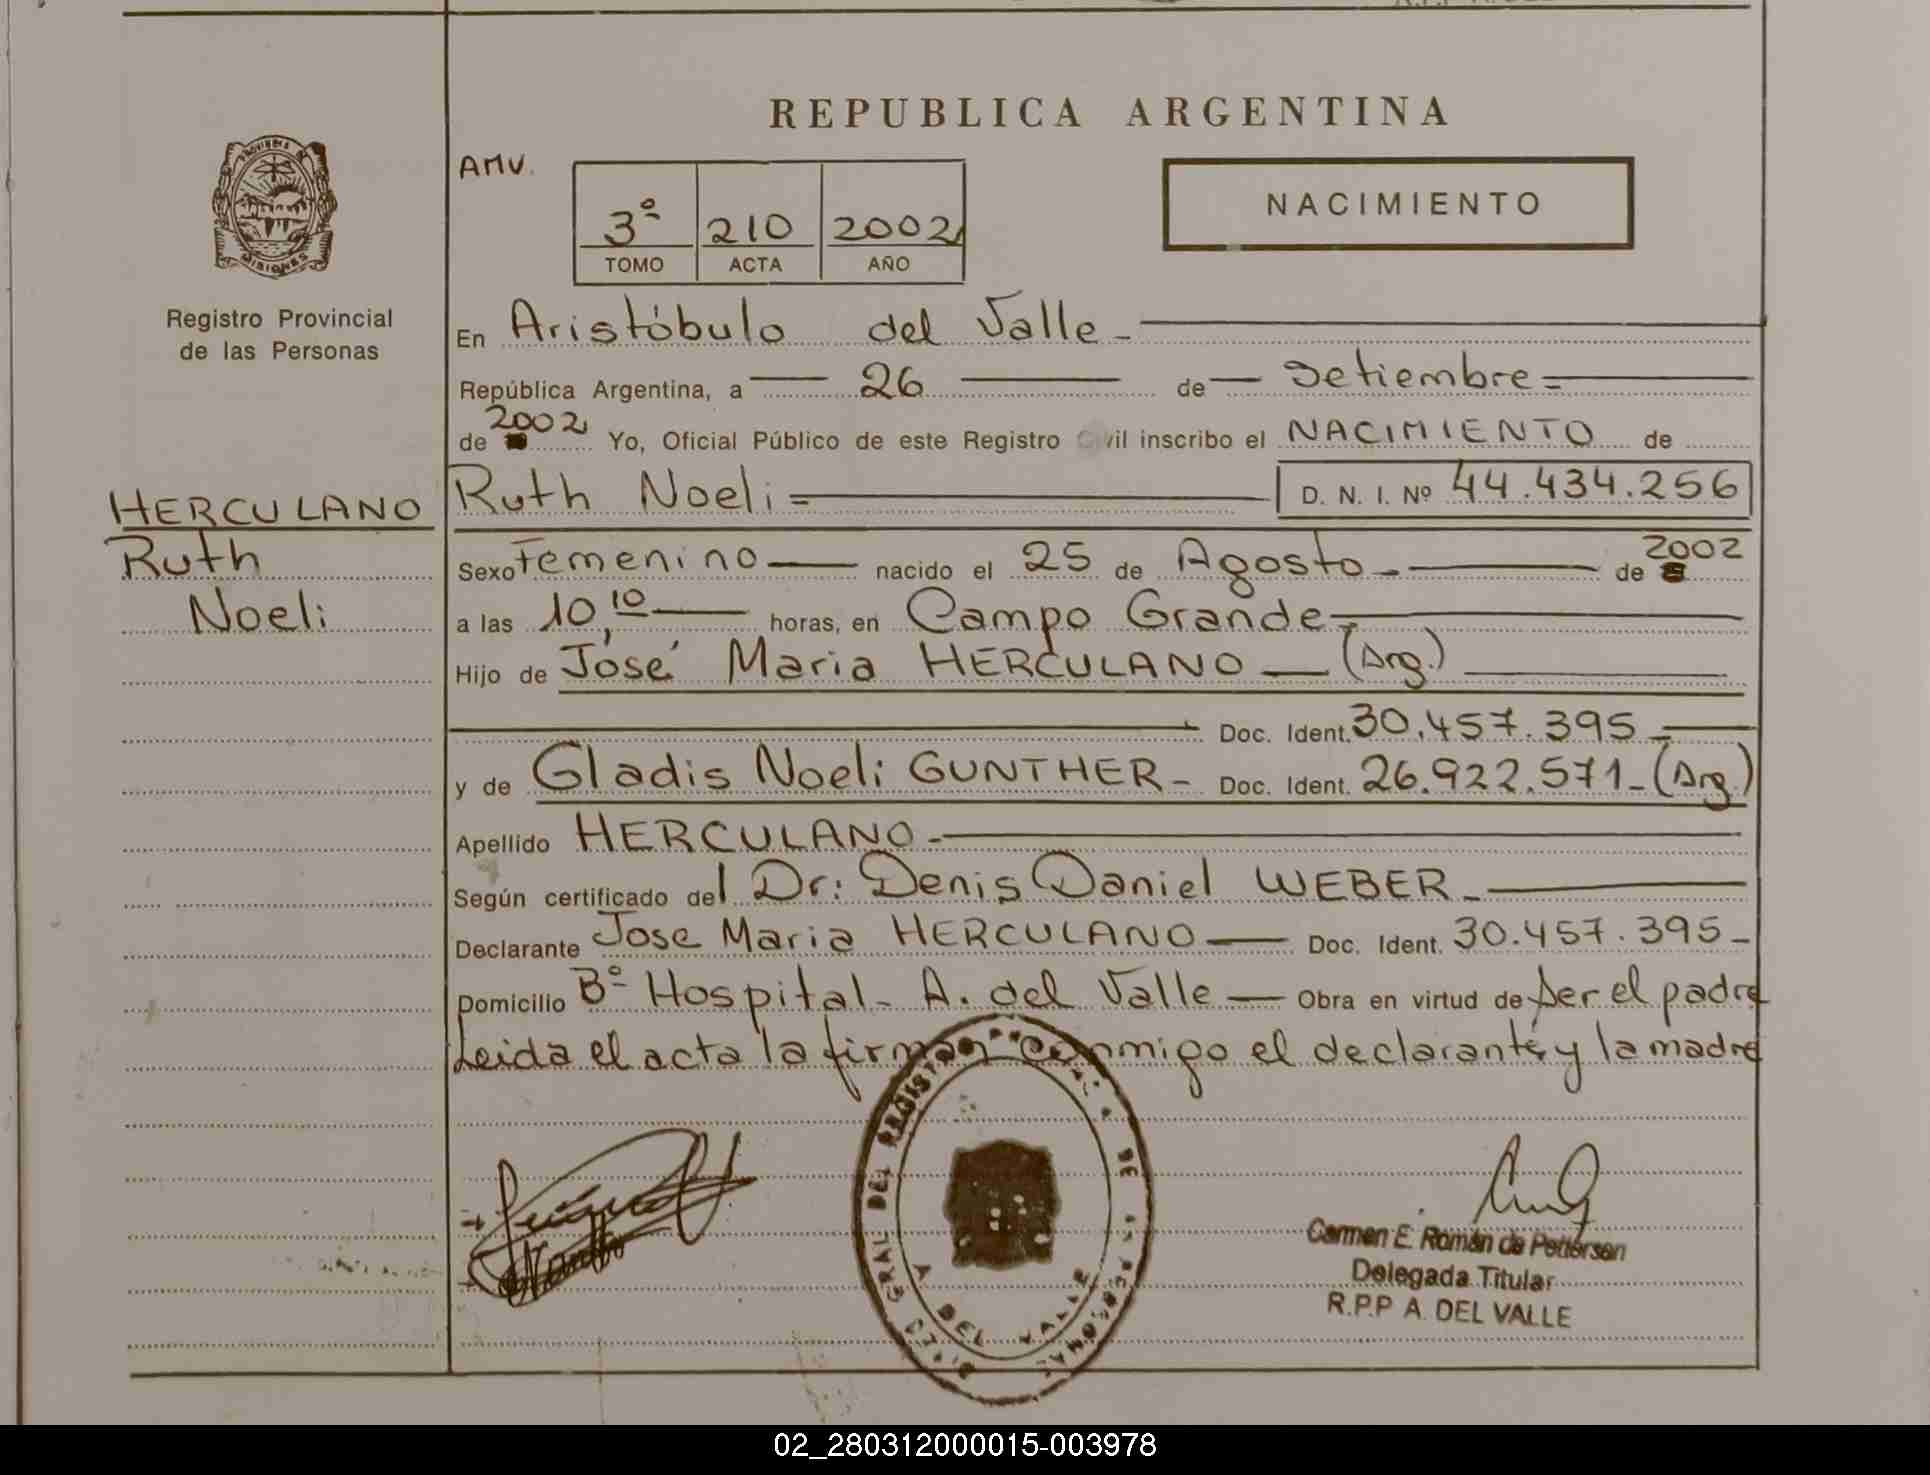 REPUBLICA ARGENTINA
PROVINCIA DE
MISIONES
Registro Provincial
de las Personas
AMV.
3º 210 2002
TOMO ACTA AÑO
NACIMIENTO
En Aristóbulo del Valle
República Argentina, a 26 de Setiembre
de 2002 Yo, Oficial Público de este Registro Civil inscribo el NACIMIENTO de
HERCULANO
Ruth
Noeli
Ruth Noeli D. N. I. Nº 44.434.256
Sexo Femenino nacido el 25 de Agosto de 2002
a las 10,10 horas, en Campo Grande
Hijo de José Maria HERCULANO (Arg.)
Doc. Ident. 30.457.395
y de Gladis Noeli GUNTHER Doc. Ident. 26.922.571 (Arg.)
Apellido HERCULANO
Según certificado del Dr: Denis Daniel WEBER
Declarante Jose Maria HERCULANO Doc. Ident. 30.457.395
Domicilio Bº Hospital - A. del Valle Obra en virtud de ser el padre
Leida el acta la firman conmigo el declarante y la madre
GRAL DEL REGISTRO
A DEL VALLE
Carmen E. Román de Pettersen
Delegada Titular
R.P.P A. DEL VALLE
02_280312000015-003978